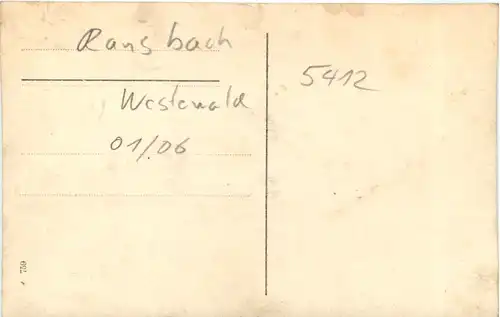 Ransbach
Westewald
01/06
5412
759